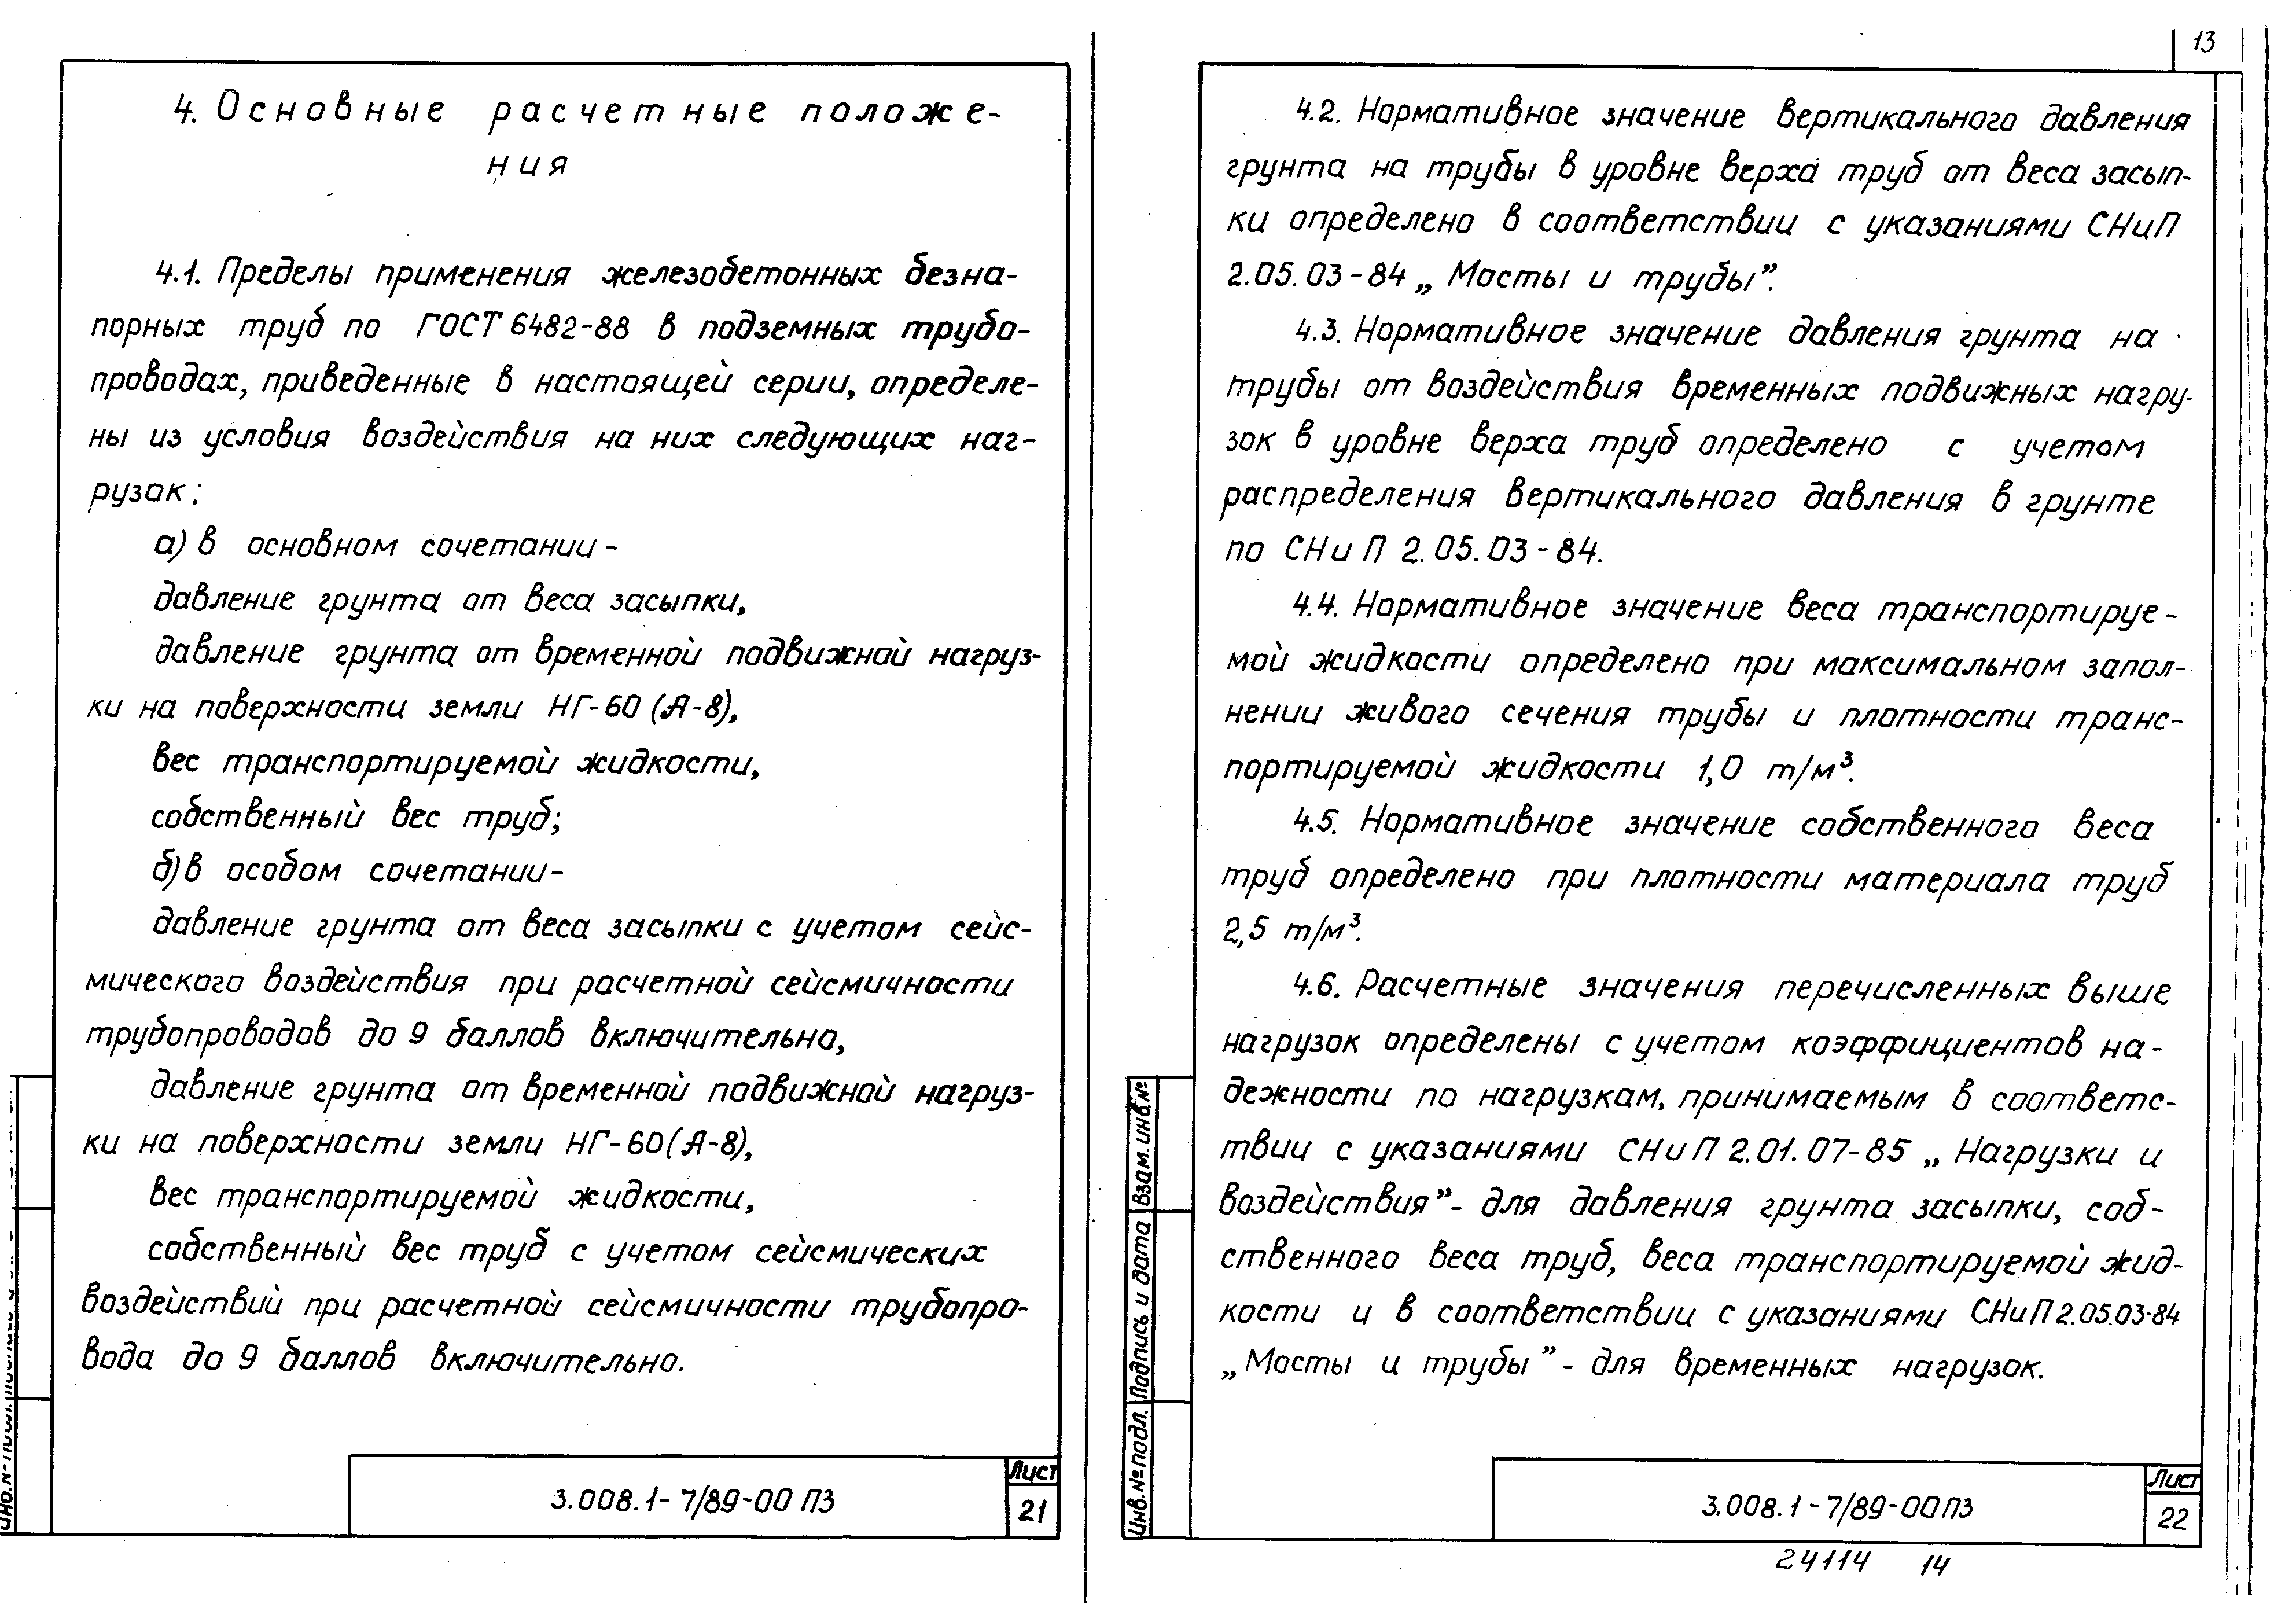 4. Основные расчетные положе-
ния
4.1. Пределы применения железобетонных безна-
порных труб по ГОСТ 6482-88 в подземных трубо-
проводах, приведенные в настоящей серии, определе-
ны из условия воздействия на них следующих наг-
рузок:
а) в основном сочетании -
давление грунта от веса засыпки,
давление грунта от временной подвижной нагруз-
ки на поверхности земли НГ-60 (А-8),
вес транспортируемой жидкости,
собственный вес труб;
б) в особом сочетании-
давление грунта от веса засыпки с учетом сейс-
мического воздействия при расчетной сейсмичности
трубопроводов до 9 баллов включительно,
давление грунта от временной подвижной нагруз-
ки на поверхности земли НГ-60 (А-8),
вес транспортируемой жидкости,
собственный вес труб с учетом сейсмических
воздействий при расчетной сейсмичности трубопро-
вода до 9 баллов включительно.
3.008.1-7/89-00 ПЗ
Лист
21
13
4.2. Нормативное значение вертикального давления
грунта на трубы в уровне верха труб от веса засып-
ки определено в соответствии с указаниями СНиП
2.05.03-84 „Мосты и трубы”.
4.3. Нормативное значение давления грунта на
трубы от воздействия временных подвижных нагру-
зок в уровне верха труб определено с учетом
распределения вертикального давления в грунте
по СНиП 2.05.03-84.
4.4. Нормативное значение веса транспортируе-
мой жидкости определено при максимальном запол-
нении живого сечения трубы и плотности транс-
портируемой жидкости 1,0 т/м³.
4.5. Нормативное значение собственного веса
труб определено при плотности материала труб
2,5 т/м³.
4.6. Расчетные значения перечисленных выше
нагрузок определены с учетом коэффициентов на-
дежности по нагрузкам, принимаемым в соответс-
твии с указаниями СНиП 2.01.07-85 „Нагрузки и
воздействия”- для давления грунта засыпки, соб-
ственного веса труб, веса транспортируемой жид-
кости и в соответствии с указаниями СНиП 2.05.03-84
„Мосты и трубы”- для временных нагрузок.
Взам. инв.№
Подпись и дата
Инв.№ подл.
3.008.1-7/89-00ПЗ
Лист
22
24114 14